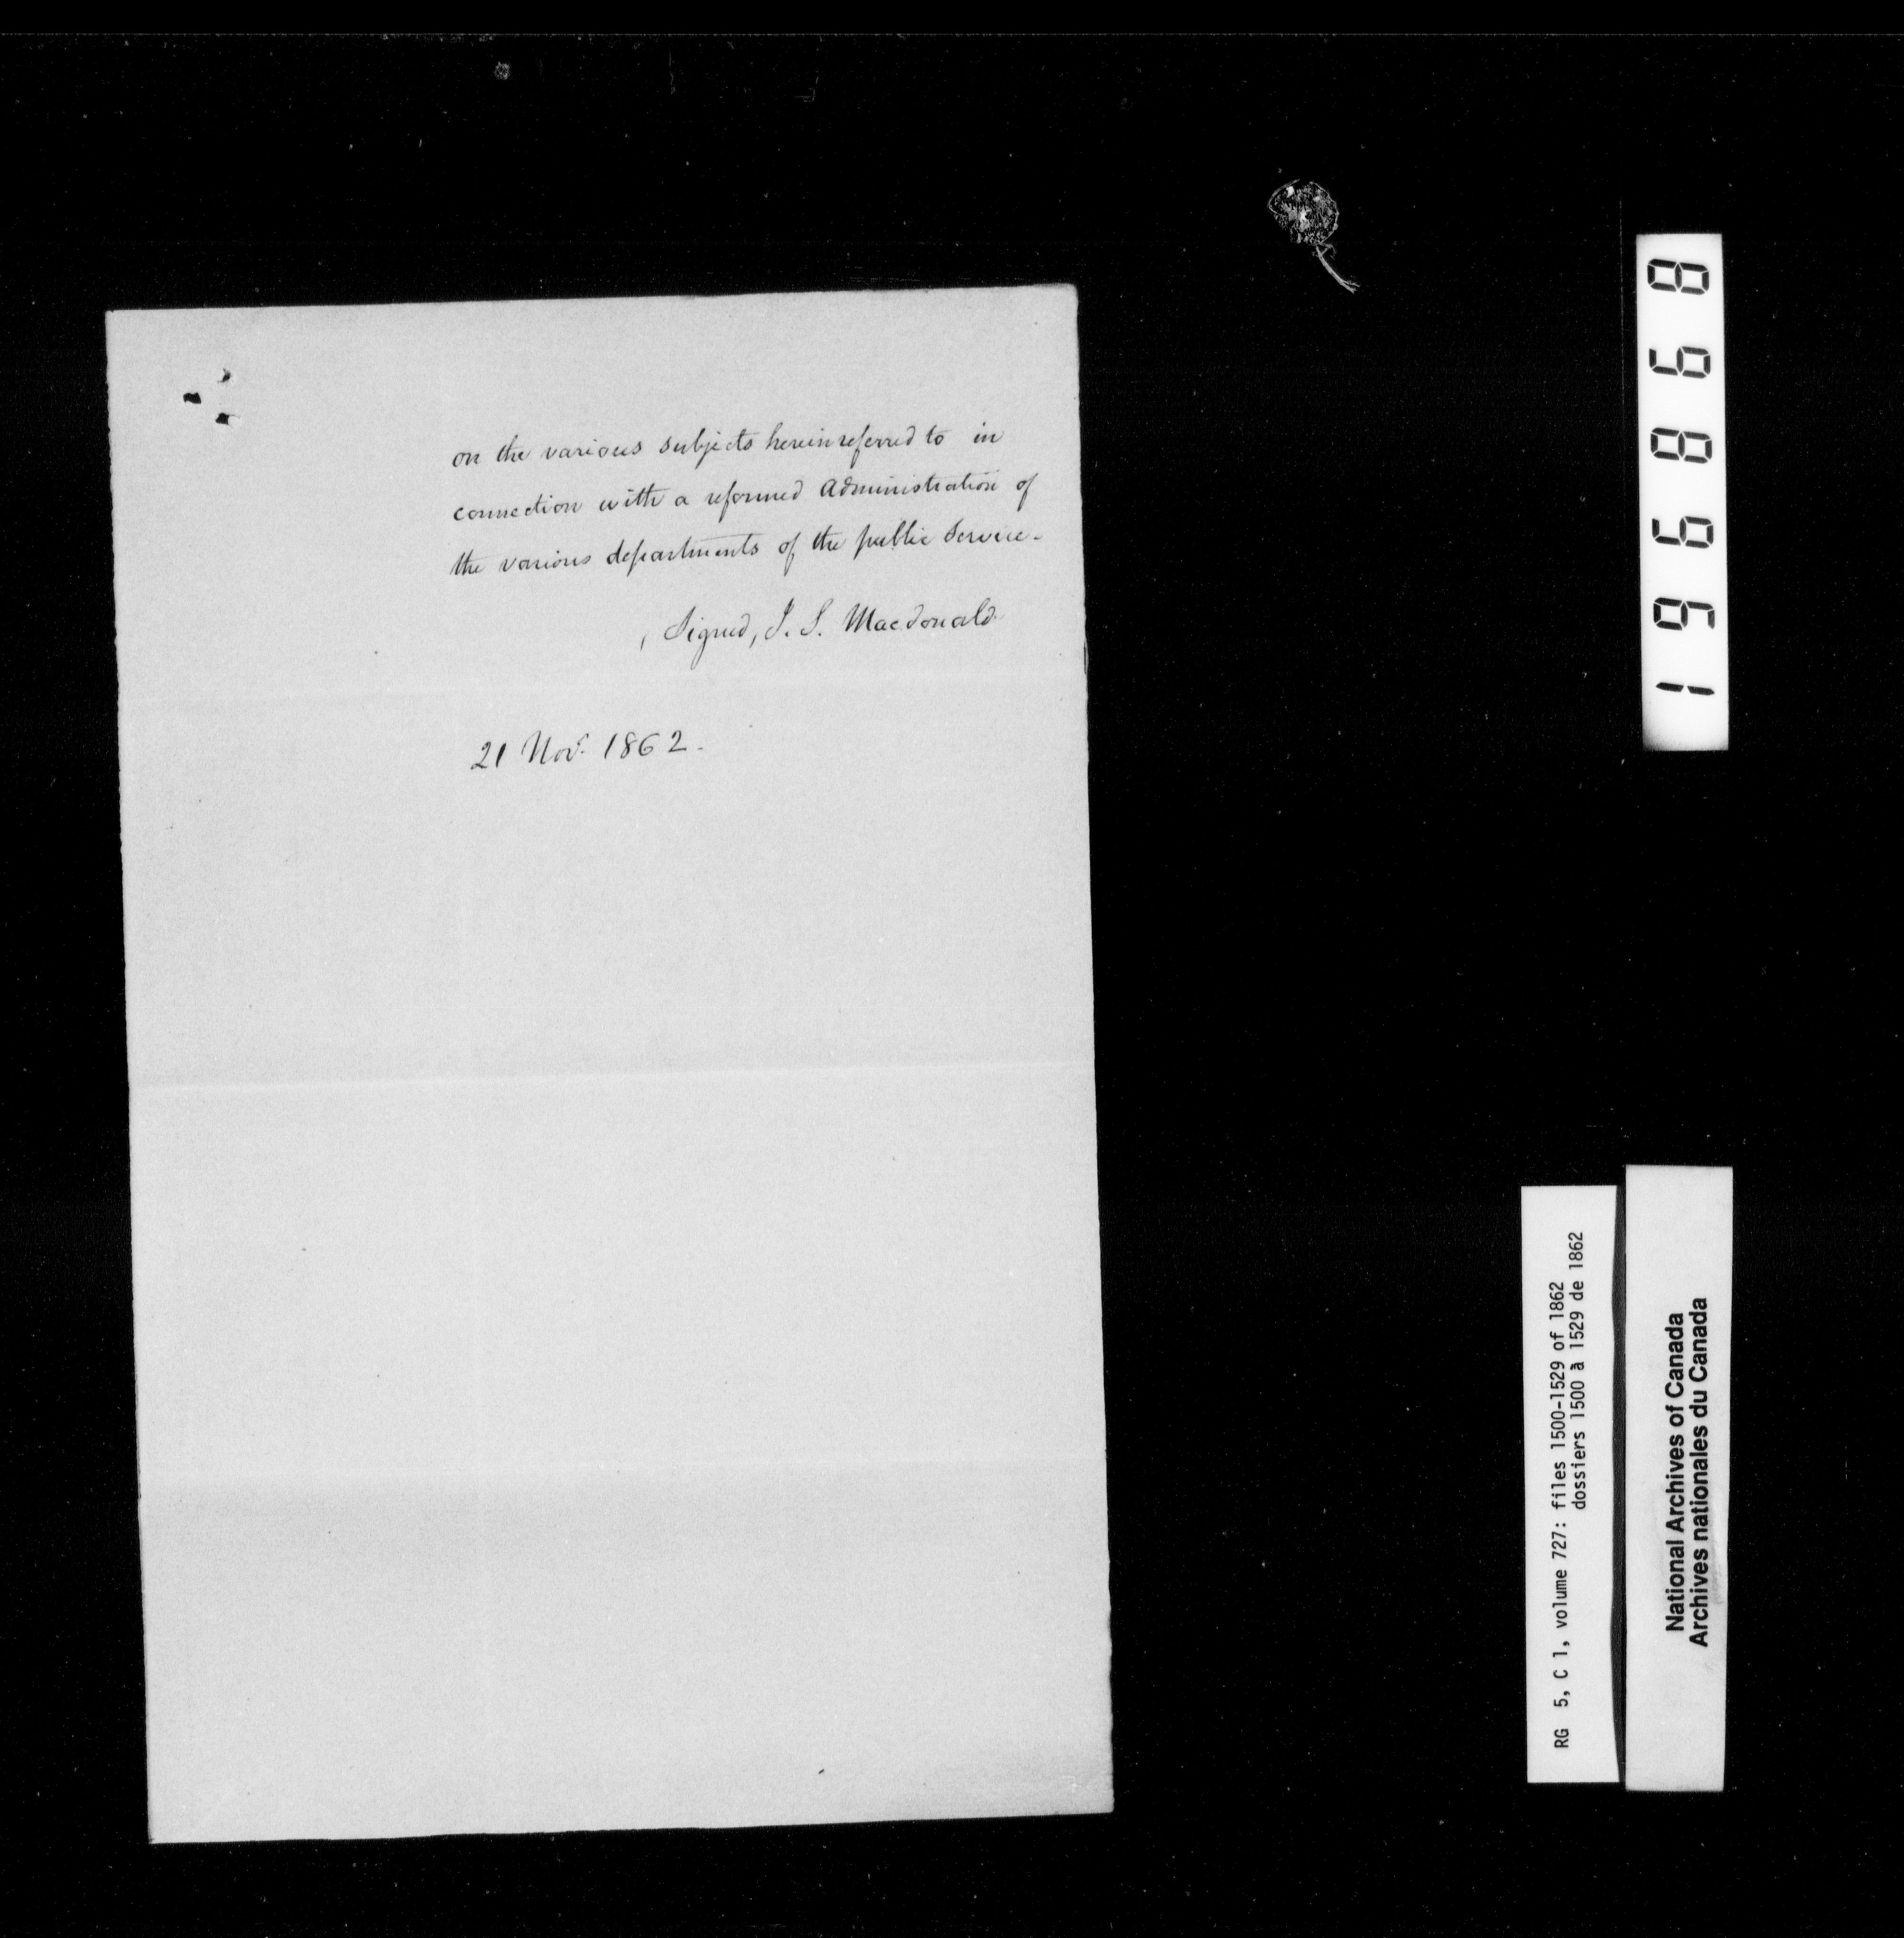 on the various subjects herein referred to in
connection with a reformed administration of
the various departments of the public Service-
Signed, J. S. Macdonald
21 Novr. 1862.
196868
RG 5, C 1, volume 727: files 1500-1529 of 1862
dossiers 1500 à 1529 de 1862
National Archives of Canada
Archives nationales du Canada